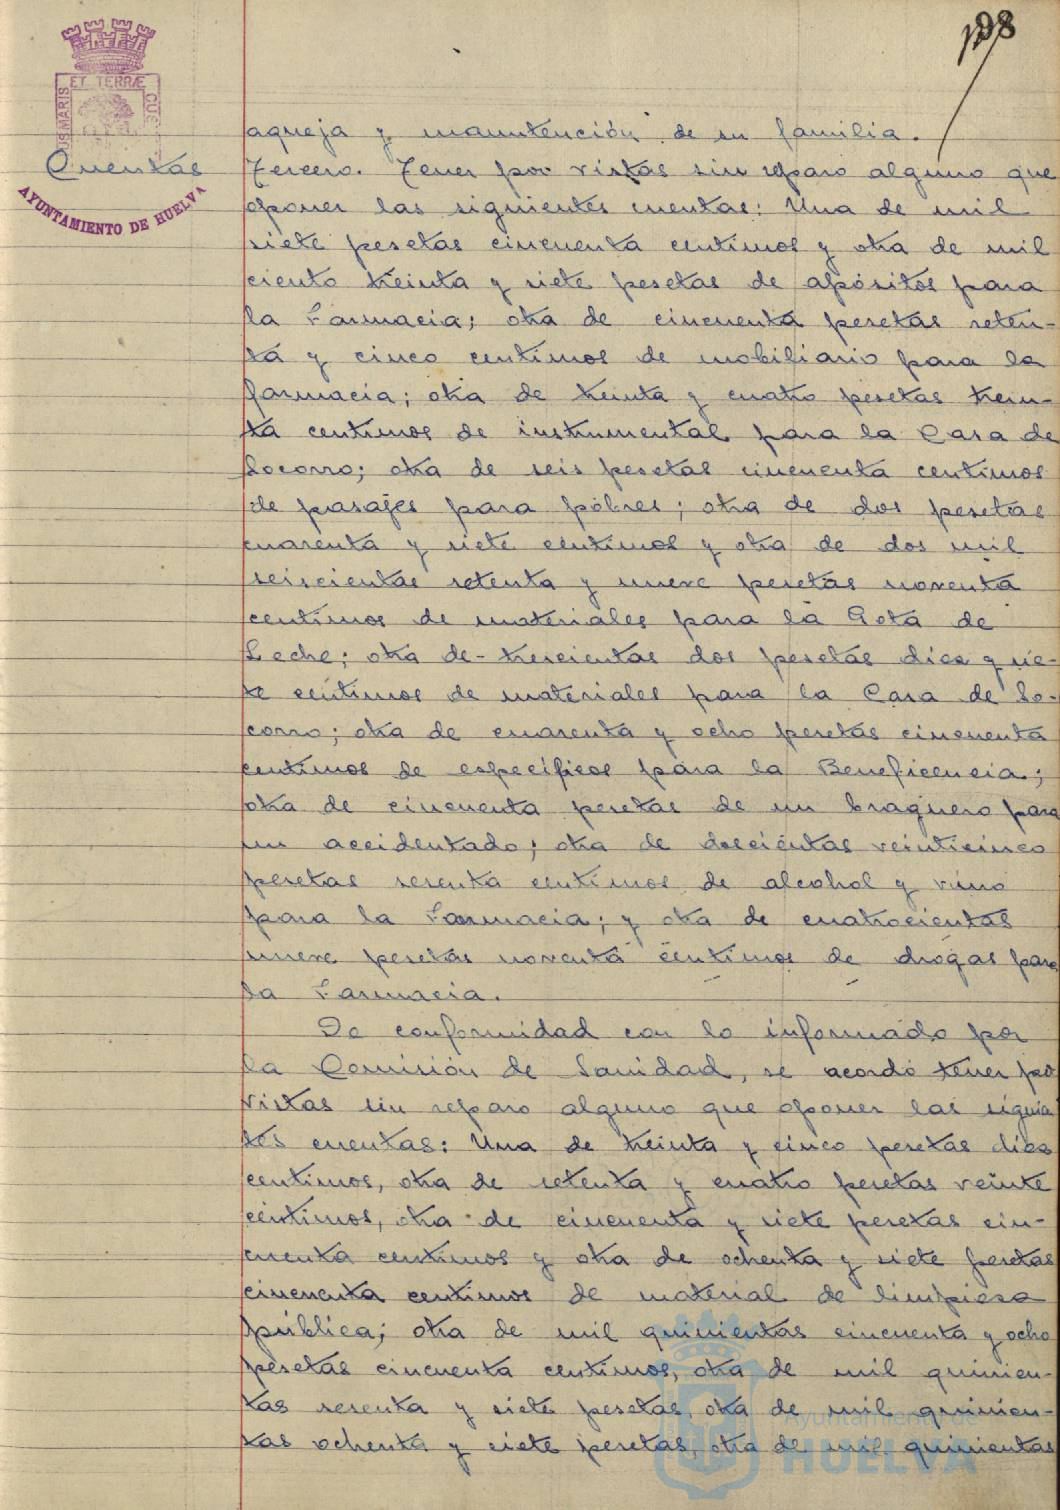 198
ET TERRÆ
US MARIS
CUS
Cuentas
AYUNTAMIENTO DE HUELVA
aqueja y manutención de su familia.
Tercero. Tener por vistas sin reparo alguno que
oponer las siguientes cuentas: Una de mil
siete pesetas cincuenta centimos y otra de mil
ciento treinta y siete pesetas de apósitos para
la Farmacia; otra de cincuenta pesetas seten-
ta y cinco centimos de mobiliario para la
farmacia; otra de treinta y cuatro pesetas trein-
ta centimos de instrumental para la Casa de
Socorro; otra de seis pesetas cincuenta centimos
de pasajes para pobres; otra de dos pesetas
cuarenta y siete centimos y otra de dos mil
seiscientas setenta y nueve pesetas noventa
centimos de materiales para la Gota de
Leche; otra de trescientas dos pesetas diez y sie-
te centimos de materiales para la Casa de So-
corro; otra de cuarenta y ocho pesetas cincuenta
centimos de específicos para la Beneficencia;
otra de cincuenta pesetas de un braguero para
un accidentado; otra de doscientas veinticinco
pesetas sesenta centimos de alcohol y vino
para la Farmacia; y otra de cuatrocientas
nueve pesetas noventa centimos de drogas para
la Farmacia.
De conformidad con lo informado por
la Comisión de Sanidad, se acordó tener por
vistas sin reparo alguno que oponer las siguien
tes cuentas: Una de treinta y cinco pesetas diez
centimos, otra de setenta y cuatro pesetas veinte
centimos, otra de cincuenta y siete pesetas cin-
cuenta centimos y otra de ochenta y siete pesetas
cincuenta centimos de material de limpieza
pública; otra de mil quinientas cincuenta y ocho
pesetas cincuenta centimos, otra de mil quinien-
tas sesenta y siete pesetas, otra de mil quinien-
tas ochenta y siete pesetas, otra de mil quinientas
Ayuntamiento de
HUELVA